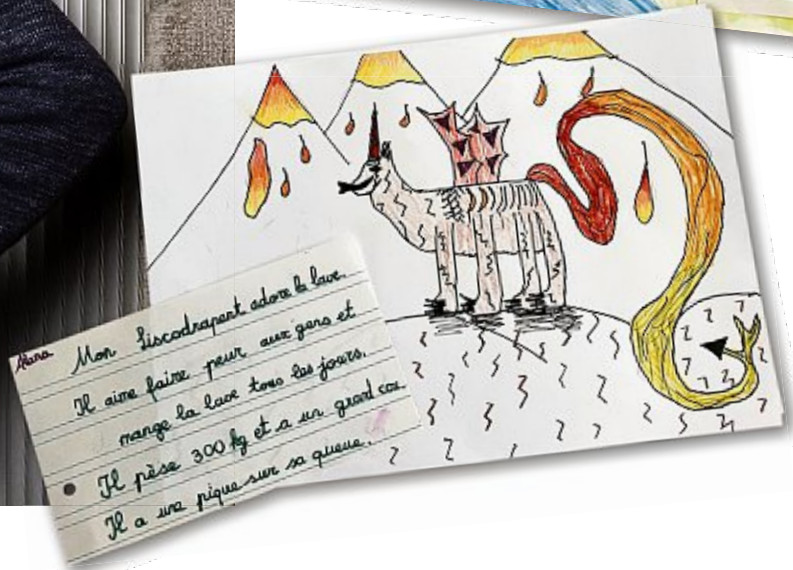 Kiara
Mon Liscodrapent adore la lave.
Il aime faire peur aux gens et
mange la lave tous les jours.
Il pèse 300 kg et a un grand cou.
Il a une pique sur sa queue.